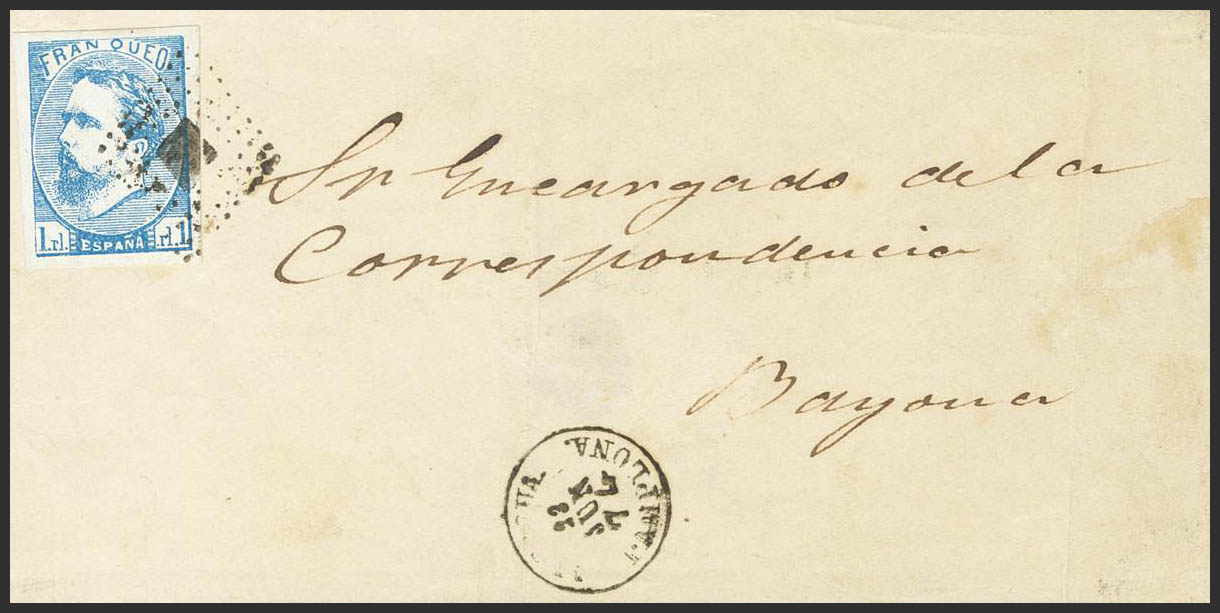 FRANQUEO
1 rl. ESPAÑA rl. 1
Sr Encargado de la
Correspondencia
Bayona
PAMPLONA.
JUN
74